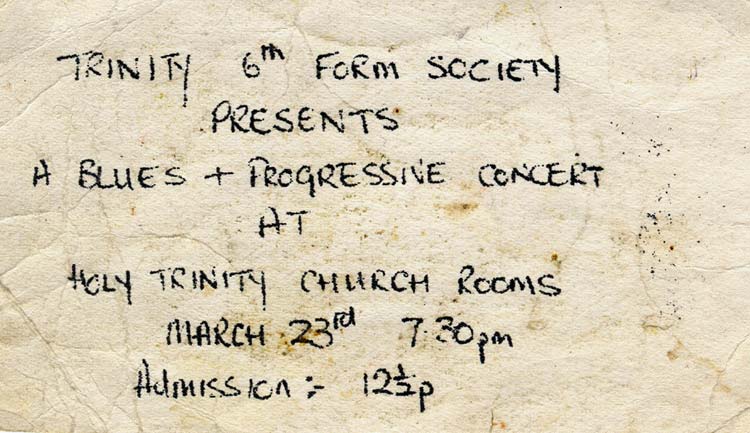 TRINITY 6th FORM SOCIETY
PRESENTS
A BLUES + PROGRESSIVE CONCERT
AT
HOLY TRINITY CHURCH ROOMS
MARCH 23rd 7.30pm
ADMISSION :- 12½p